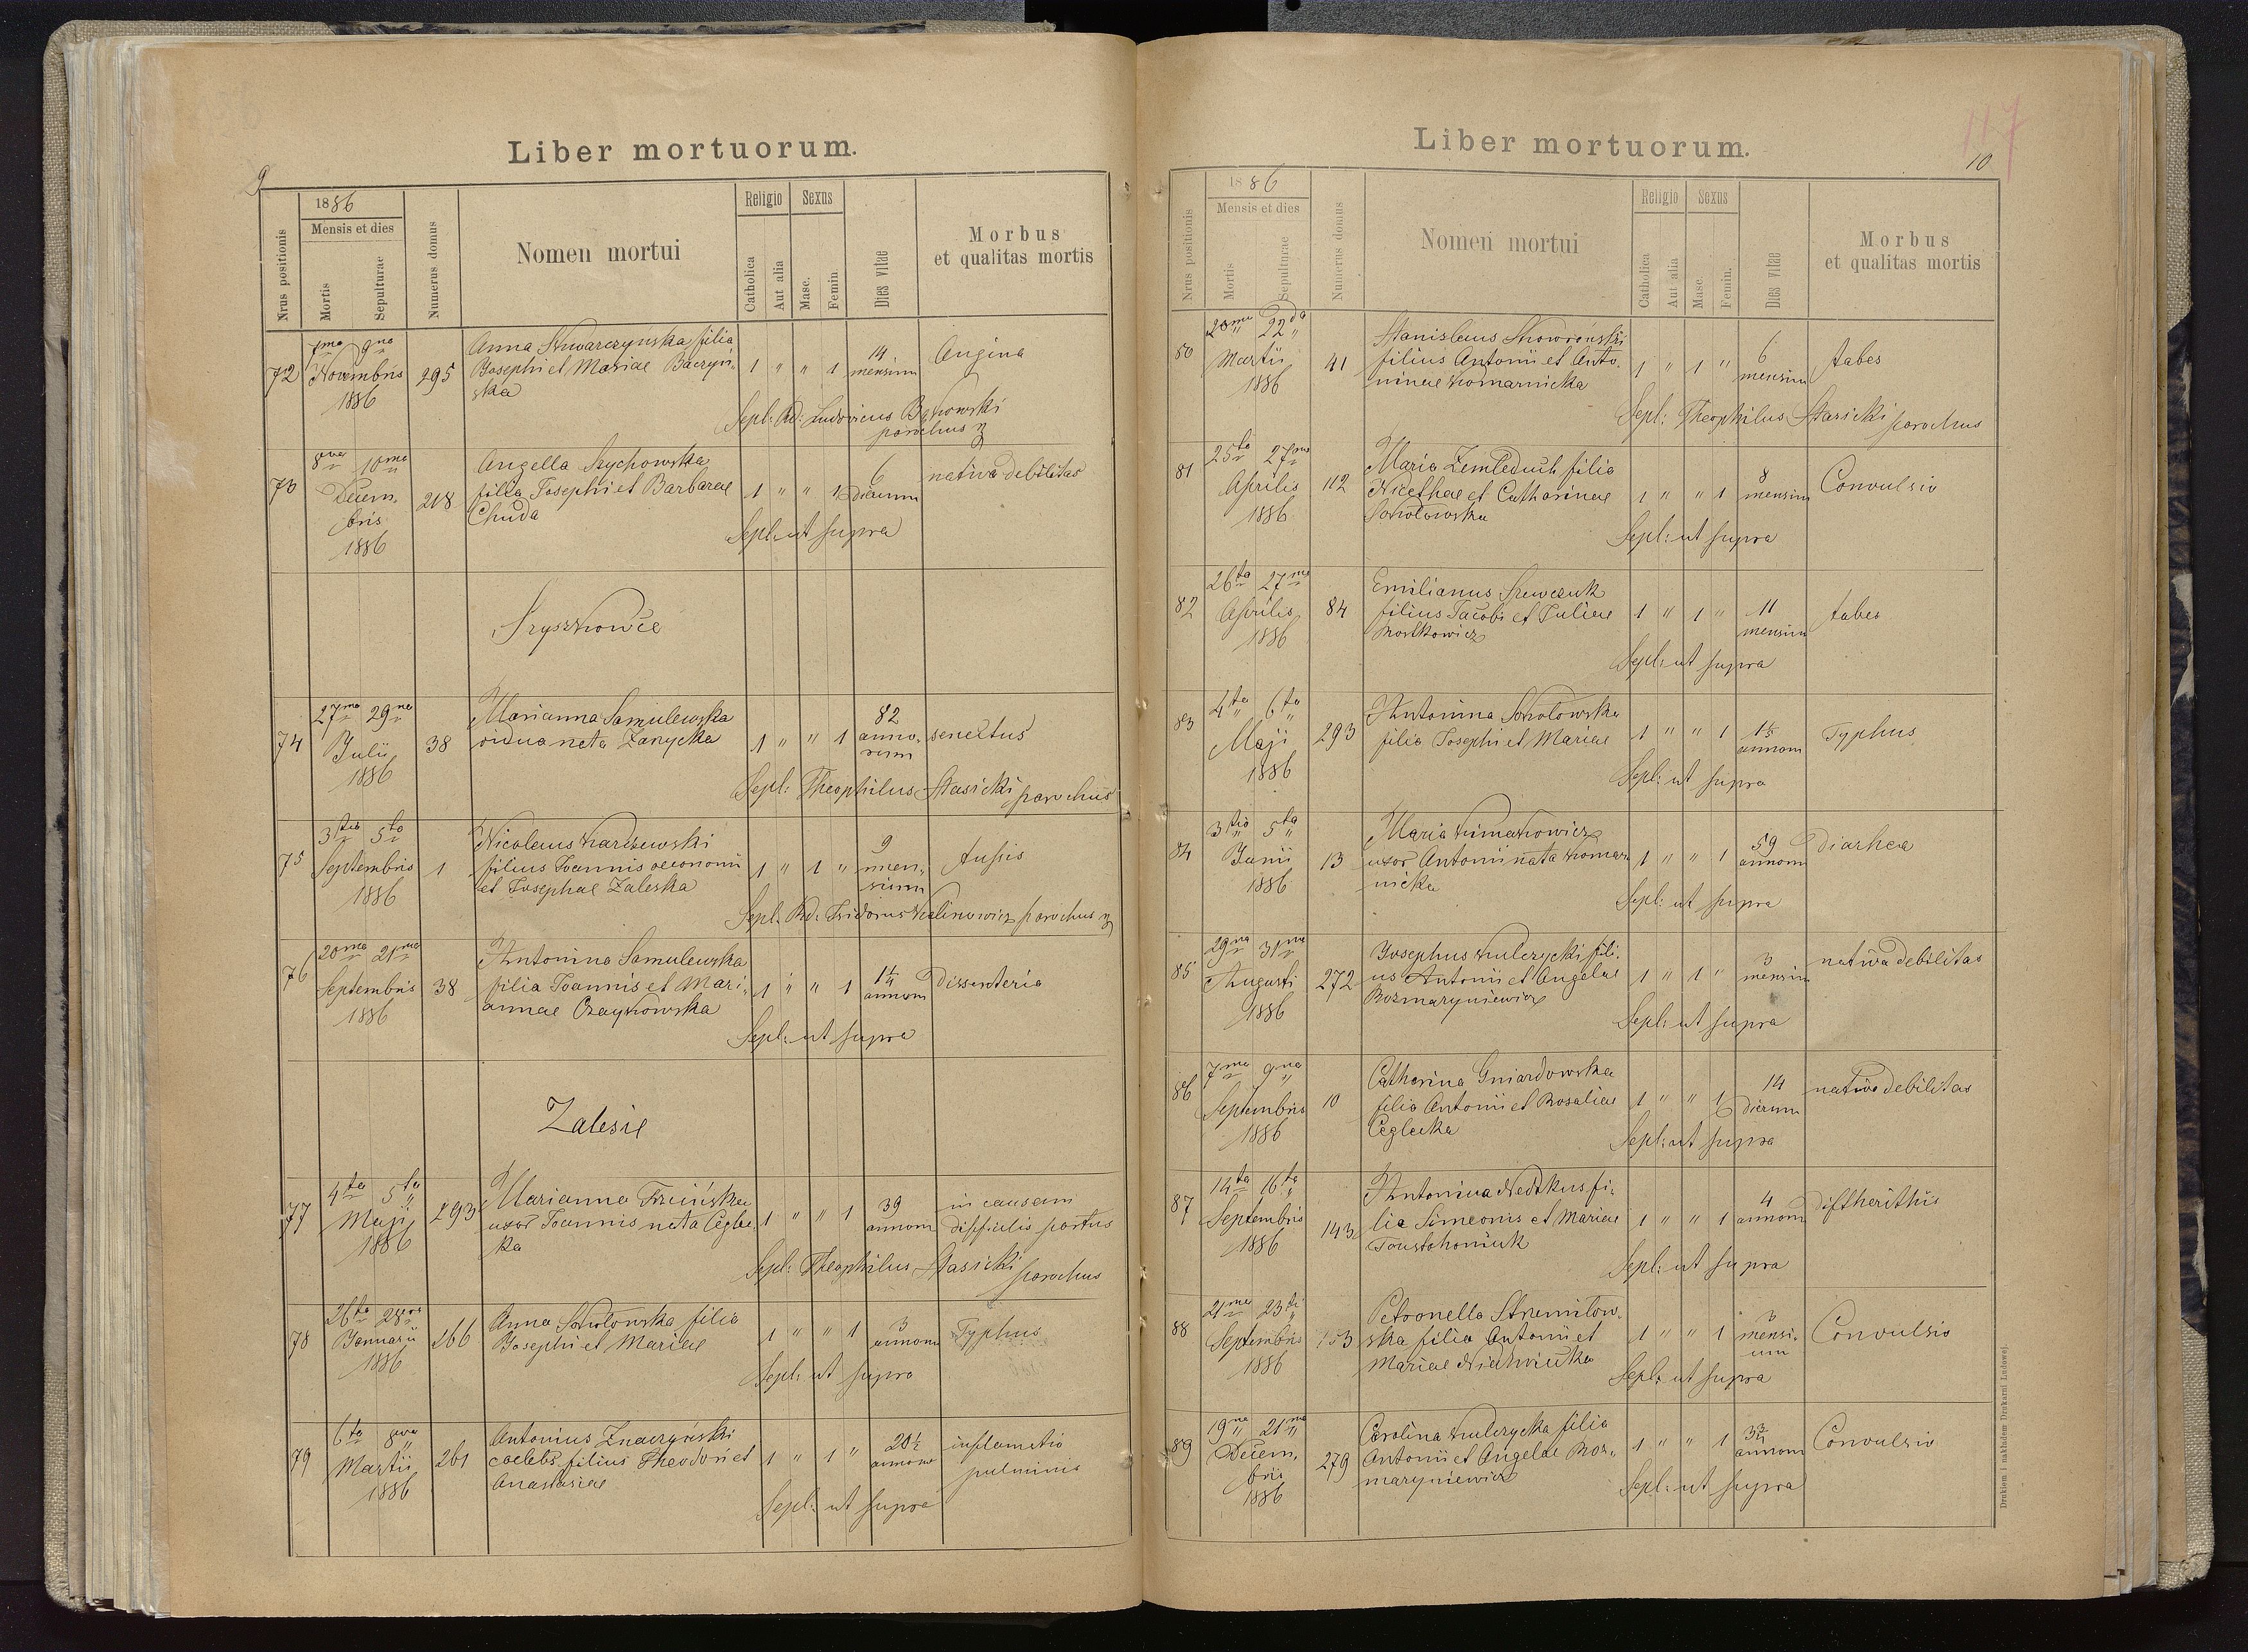 9
Liber mortuorum.
Nrus positionis
1886
Mensis et dies
Mortis
Sepulturae
Numerus domus
Nomen mortui
Religio
Catholica
Aut alia
Sexus
Masc.
Femin.
Dies vitae
Morbus
et qualitas mortis
72
7ma 9na
Novembris
1886
295
Anna filia
Josephi et Mariae Baczyń-
ska
1 " " 1
14
mensium
Angina
Sepl: Rd: Ludovicus
parochus
73
8va 10ma
Decem-
bris
1886
218
Angella Szychowska
filia Josephi et Barbarae
Chuda
1 " " 1
6
dierum
nativa debilitas
Sepl: ut supra
Szyszkowce
74
27ma 29na
Julii
1886
38
Marianna Samulewska
vidua nata Zarycka
1 " " 1
82
anno-
rum
senectus
Sepl: Theophilus Stasicki parochus
75
3tia 5ta
Septembris
1886
1
Nicolaus Karczewski
filius Joannis oeconomi
et Josephae Zaleska
1 " 1 "
9
men-
sium
Tussis
Sepl: Rd: Isidorus Kalinowicz parochus
76
20ma 21ma
Septembris
1886
38
Antonina Samulewska
filia Joannis et Mari-
annae Czaykowska
1 " " 1
1 1/4
annom
Dissenteria
Sepl: ut supra
Zalesie
77
4ta 5ta
Maji
1886
293
Marianna
uxor Joannis nata Ceglec-
ka
1 " " 1
39
annom
in causam
difficilis partus
Sepl: Theophilus Stasicki
parochus
78
26ta 28va
Januarii
1886
266
Anna Sokołowska filia
Josephi et Mariae
1 " " 1
3
annom
Typhus
Sepl: ut supra
79
6ta 8va
Martii
1886
261
Antonius Znaczyński
coelebs filius Theodori et
Anastasiae
1 " 1 "
20 1/2
annom
inflamatio
pulminis
Sepl: ut supra
117
10
Liber mortuorum.
Nrus positionis
1886
Mensis et dies
Mortis
Sepulturae
Numerus domus
Nomen mortui
Religio
Catholica
Aut alia
Sexus
Masc.
Femin.
Dies vitae
Morbus
et qualitas mortis
80
20ma 22da
Martii
1886
41
Stanislaus Skowroński
filius Antonii et Anto-
ninae Komarnicka
1 " 1 "
6
mensium
tabes
Sepl: Theophilus Stasicki parochus
81
25ta 27ma
Aprilis
1886
112
Maria filia
Nicethae et Catharinae
Sokołowska
1 " " 1
8
mensium
Convulsio
Sepl: ut supra
82
26ta 27ma
Aprilis
1886
84
Emilianus Szewczuk
filius Jacobi et Juliae
Kostkowicz
1 " 1 "
11
mensium
tabes
Sepl: ut supra
83
4ta 6ta
Maji
1886
293
Antonina Sokołowska
filia Josephi et Mariae
1 " " 1
annom
Typhus
Sepl: ut supra
84
3tia 5ta
Junii
1886
13
Maria Klimakowicz
uxor Antonii nata Komar-
nicka
1 " " 1
59
annom
Diarhea
Sepl: ut supra
85
29na 31ma
Augusti
1886
272
Josephus Kulczycki fili-
us Antonii et Angelae
Rozmaryniewicz
1 " 1 "
3
mensium
nativa debilitas
Sepl: ut supra
86
7ma 9na
Septembris
1886
10
Catharina Gniazdowska
filia Antonii et Rosaliae
Ceglecka
1 " " 1
14
dierum
nativa debilitas
Sepl: ut supra
87
14ta 16ta
Septembris
1886
143
Antonina fi-
lia Simeonis et Mariae
Toustohoniuk
1 " " 1
4
annom
diftherithis
Sepl: ut supra
88
21ma 23tia
Septembris
1886
153
Petronella Strumiłow-
ska filia Antonii et
Mariae
1 " " 1
3
mensi-
um
Convulsio
Sepl: ut supra
89
19na 21ma
Decem-
bris
1886
279
Carolina Kulczycka filia
Antonii et Angelae Roz-
maryniewicz
1 " " 1
3 3/4
annom
Convulsio
Sepl: ut supra
Drukiem i nakładem Drukarni Ludowej.